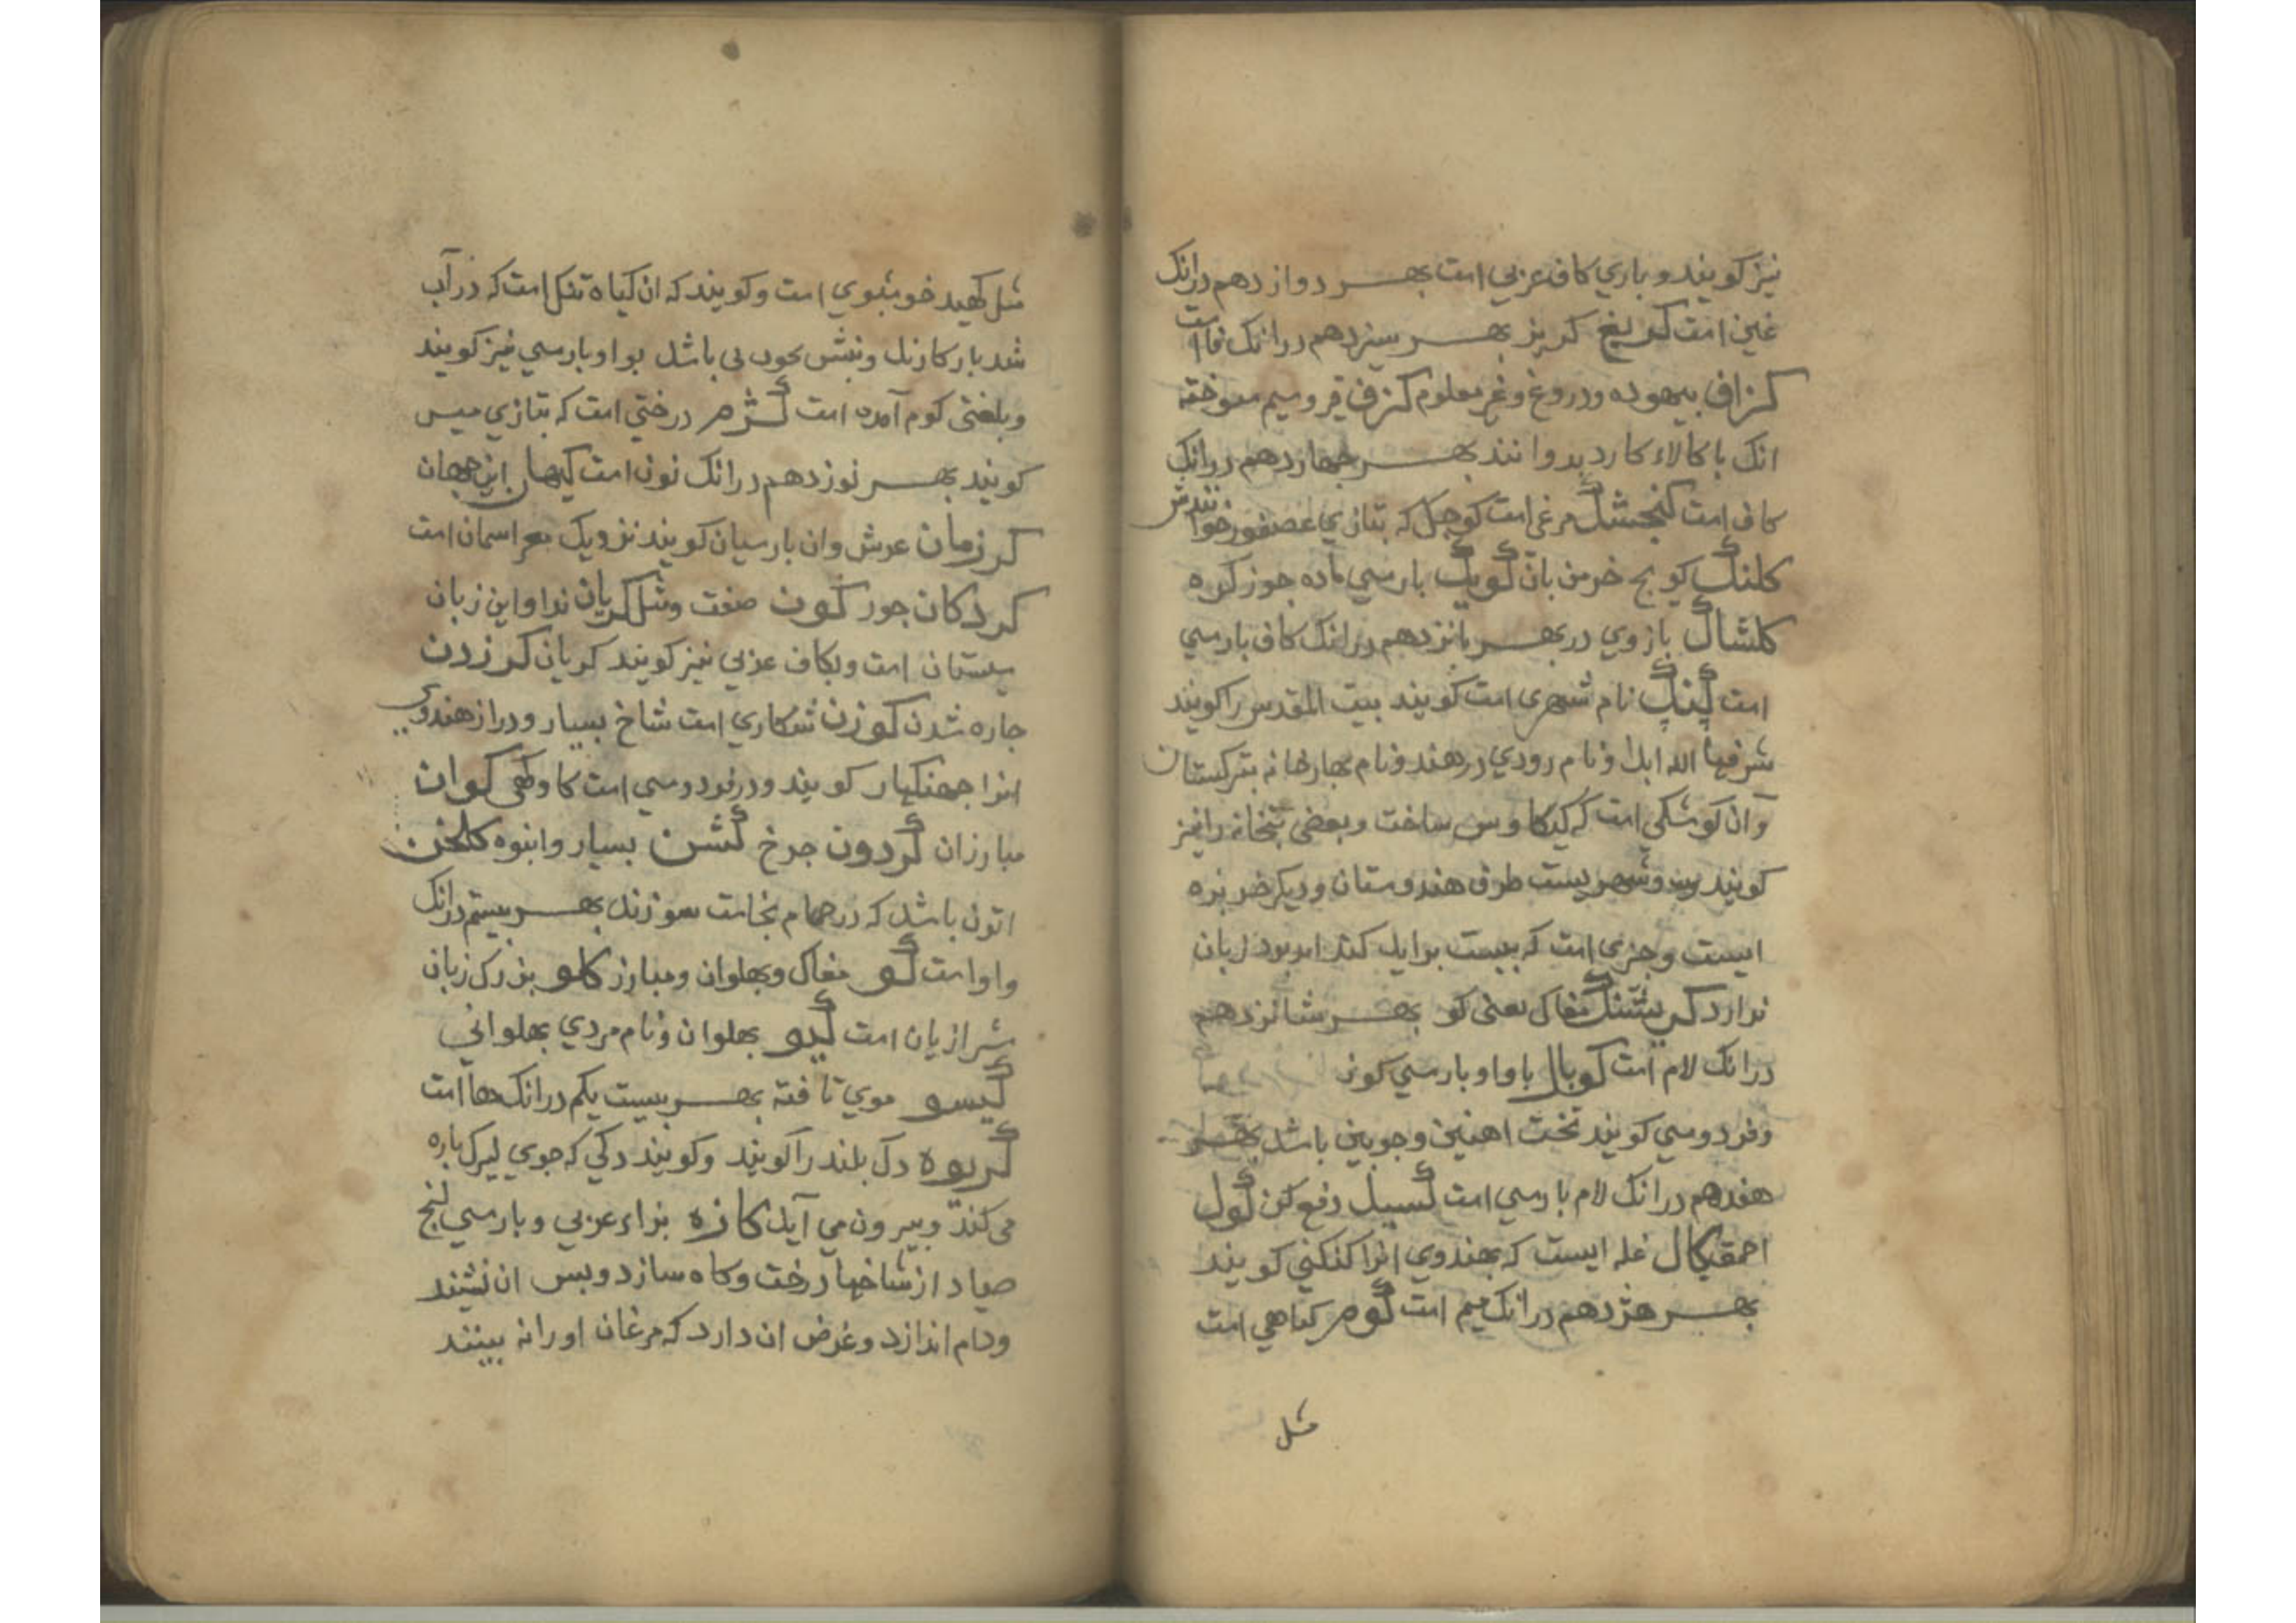 نیز کویند و باری کاف عربی است بهر دوازدهم درانک
غین است کریغ کریز بهر سیزدهم درانک فا است
کزاف بیهوده و دروغ و غیر معلوم کزف قیر و سیم سوخته
انک با کالاء کارد بدوانند بهر جهاردهم درانک
کاف است کنجشک مرغی است کوجک که بتازی عصفور خوانندش
کلنک کویج خرمن بان کویک بارسی ماده جوز کره
کلشاک بازوی در بهر بانزدهم درانک کاف بارسی
است کنک نام شهری است کویند بیت المقدس را کویند
شرفها الله ابدا و نام رودی در هند و نام بهارخانه بترکستان
و آن کوشکی است که کیکاوس ساخت و بعضی بتخانه را نیز
کویند و شهریست طرف هندوستان و دیکر خربزه
ایست و جزی است که بیست بوایل کند زبان
ندارد مغاک یعنی کو بهر شانزدهم
درانک لام است کوبال با واو بارسی کوز
و فردوسی کویند تخت اهنین و جوبین باشد بهر
هفدهم درانک لام بارسی است کسیل دفع کن کول
احمق کال غله ایست که بهندوی انرا کنکنی کویند
بهر هژدهم درانک میم است کوم کیاهی است
مثل
مثل کهید خوشبوی است و کویند که ان کیاه تنک است که در آب
شد بار کازند و نبشش بحون نی باشد بواو بارسی نیز کویند
و بلغتی کوم آمده است کژم درختی است که بتازی میس
کویند بهر نوزدهم درانک نون است کیهان این جهان
کرزمان عرش و ان بارسیان کویند نزدیک اسمان است
کردکان جوز کون صفت و شکل کریان ندا و این زبان
سیستان است و بکاف عربی نیز کویند کریان کرزدن
جاره شدن کوزن شکاری است شاخ بسیار و دراز هندوی
انرا جهنکهار کویند و در فردوسی است کاو کهی کوان
مبارزان کردون جرخ کشن بسیار و انبوه کلخن
اتون باشد که در حمام بخاست سوزند بهر بیستم درانک
واو است کو مغاک و بهلوان و مبارز کلو بزرک زبان
شیرازیان است کیو بهلوان و نام مردی بهلوانی
کیسو موی تافته بهر بیست یکم درانک ها است
کریوه دک بلند را کویند و کویند دکی که جوی لیرک باره
می کند و بیرون می آید کازه بزاء عربی و بارسی لنج
صیاد از شاخها درخت و کاه سازد و بس ان نشیند
و دام اندازد و غرض ان دارد که مرغان او را نه بینند